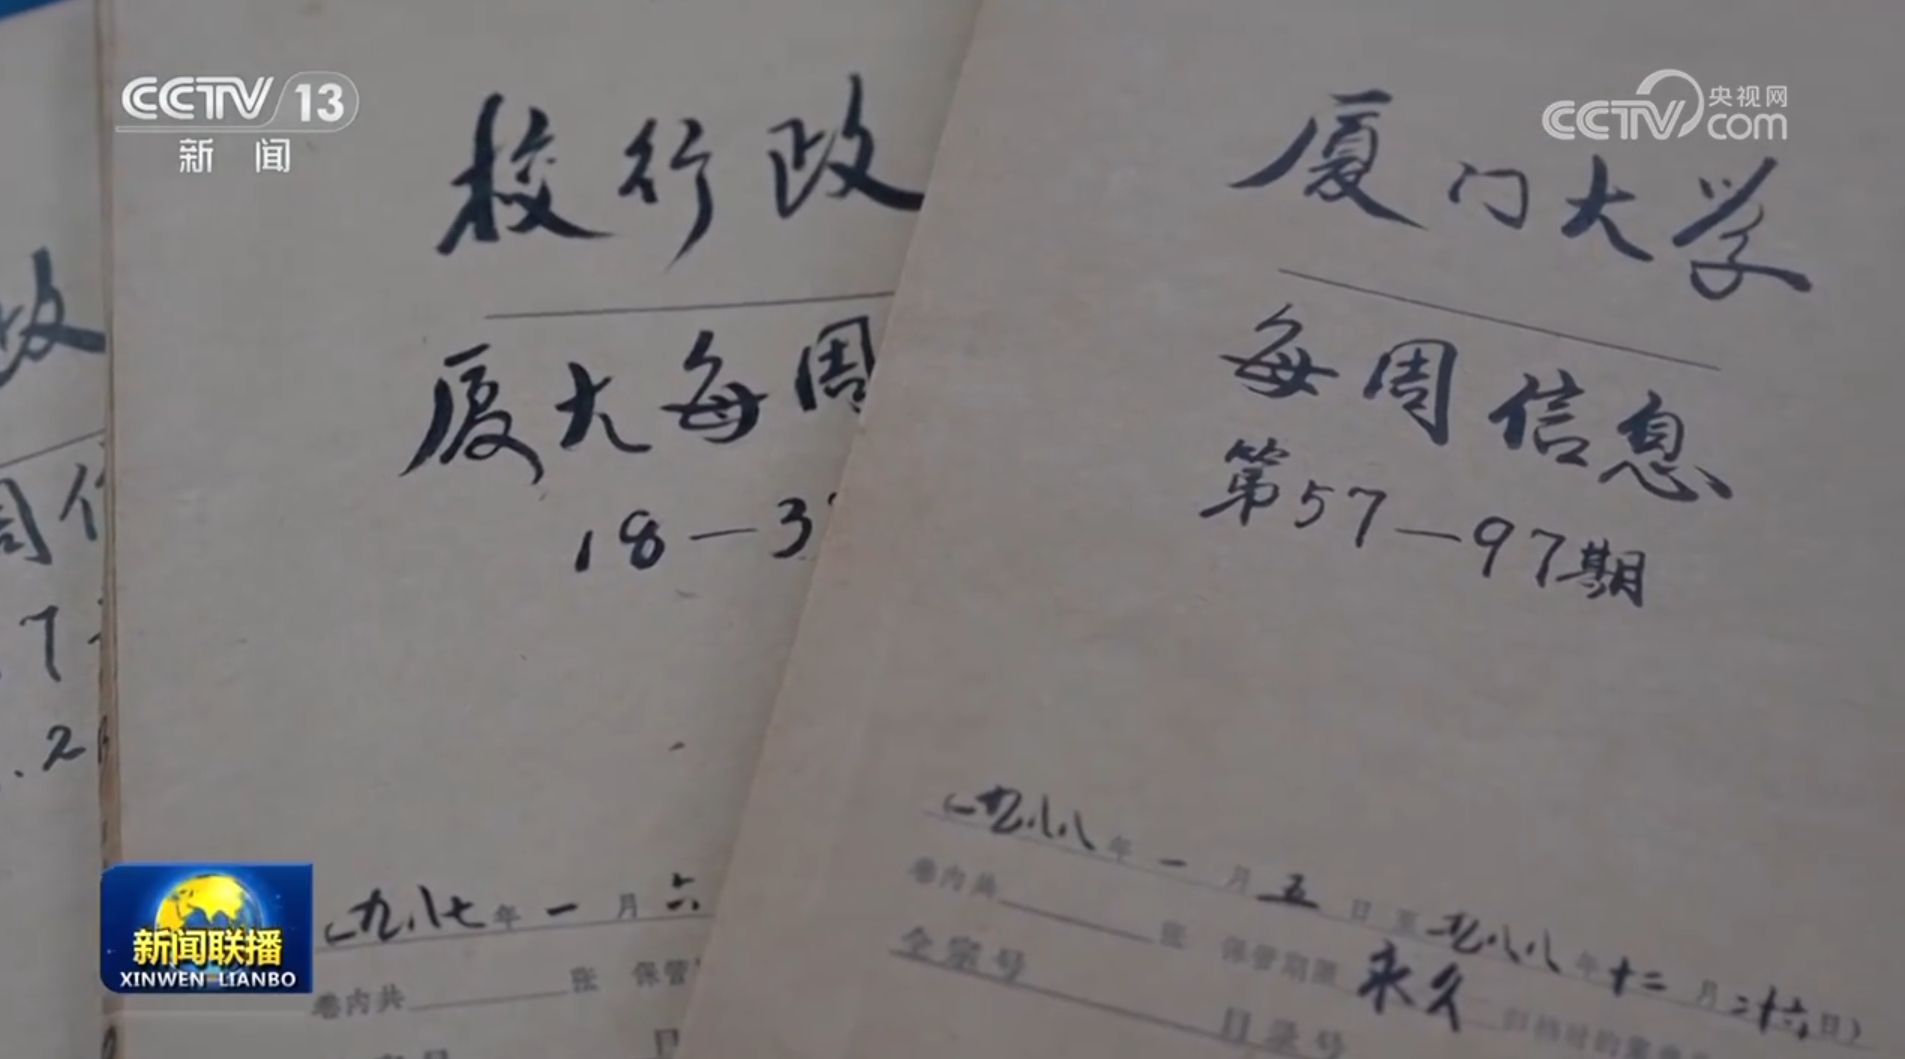 CCTV 13
新闻
央视网
CCTV com
校行政
厦大每周
18—3
一九八七年一月六
卷内共 张 保管
厦门大学
每周信息
第57—97期
一九八八年一月五日至一九八八年十二月二十六日
卷内共 张 保管期限 永久
全宗号
目录号
新闻联播
XINWEN LIANBO